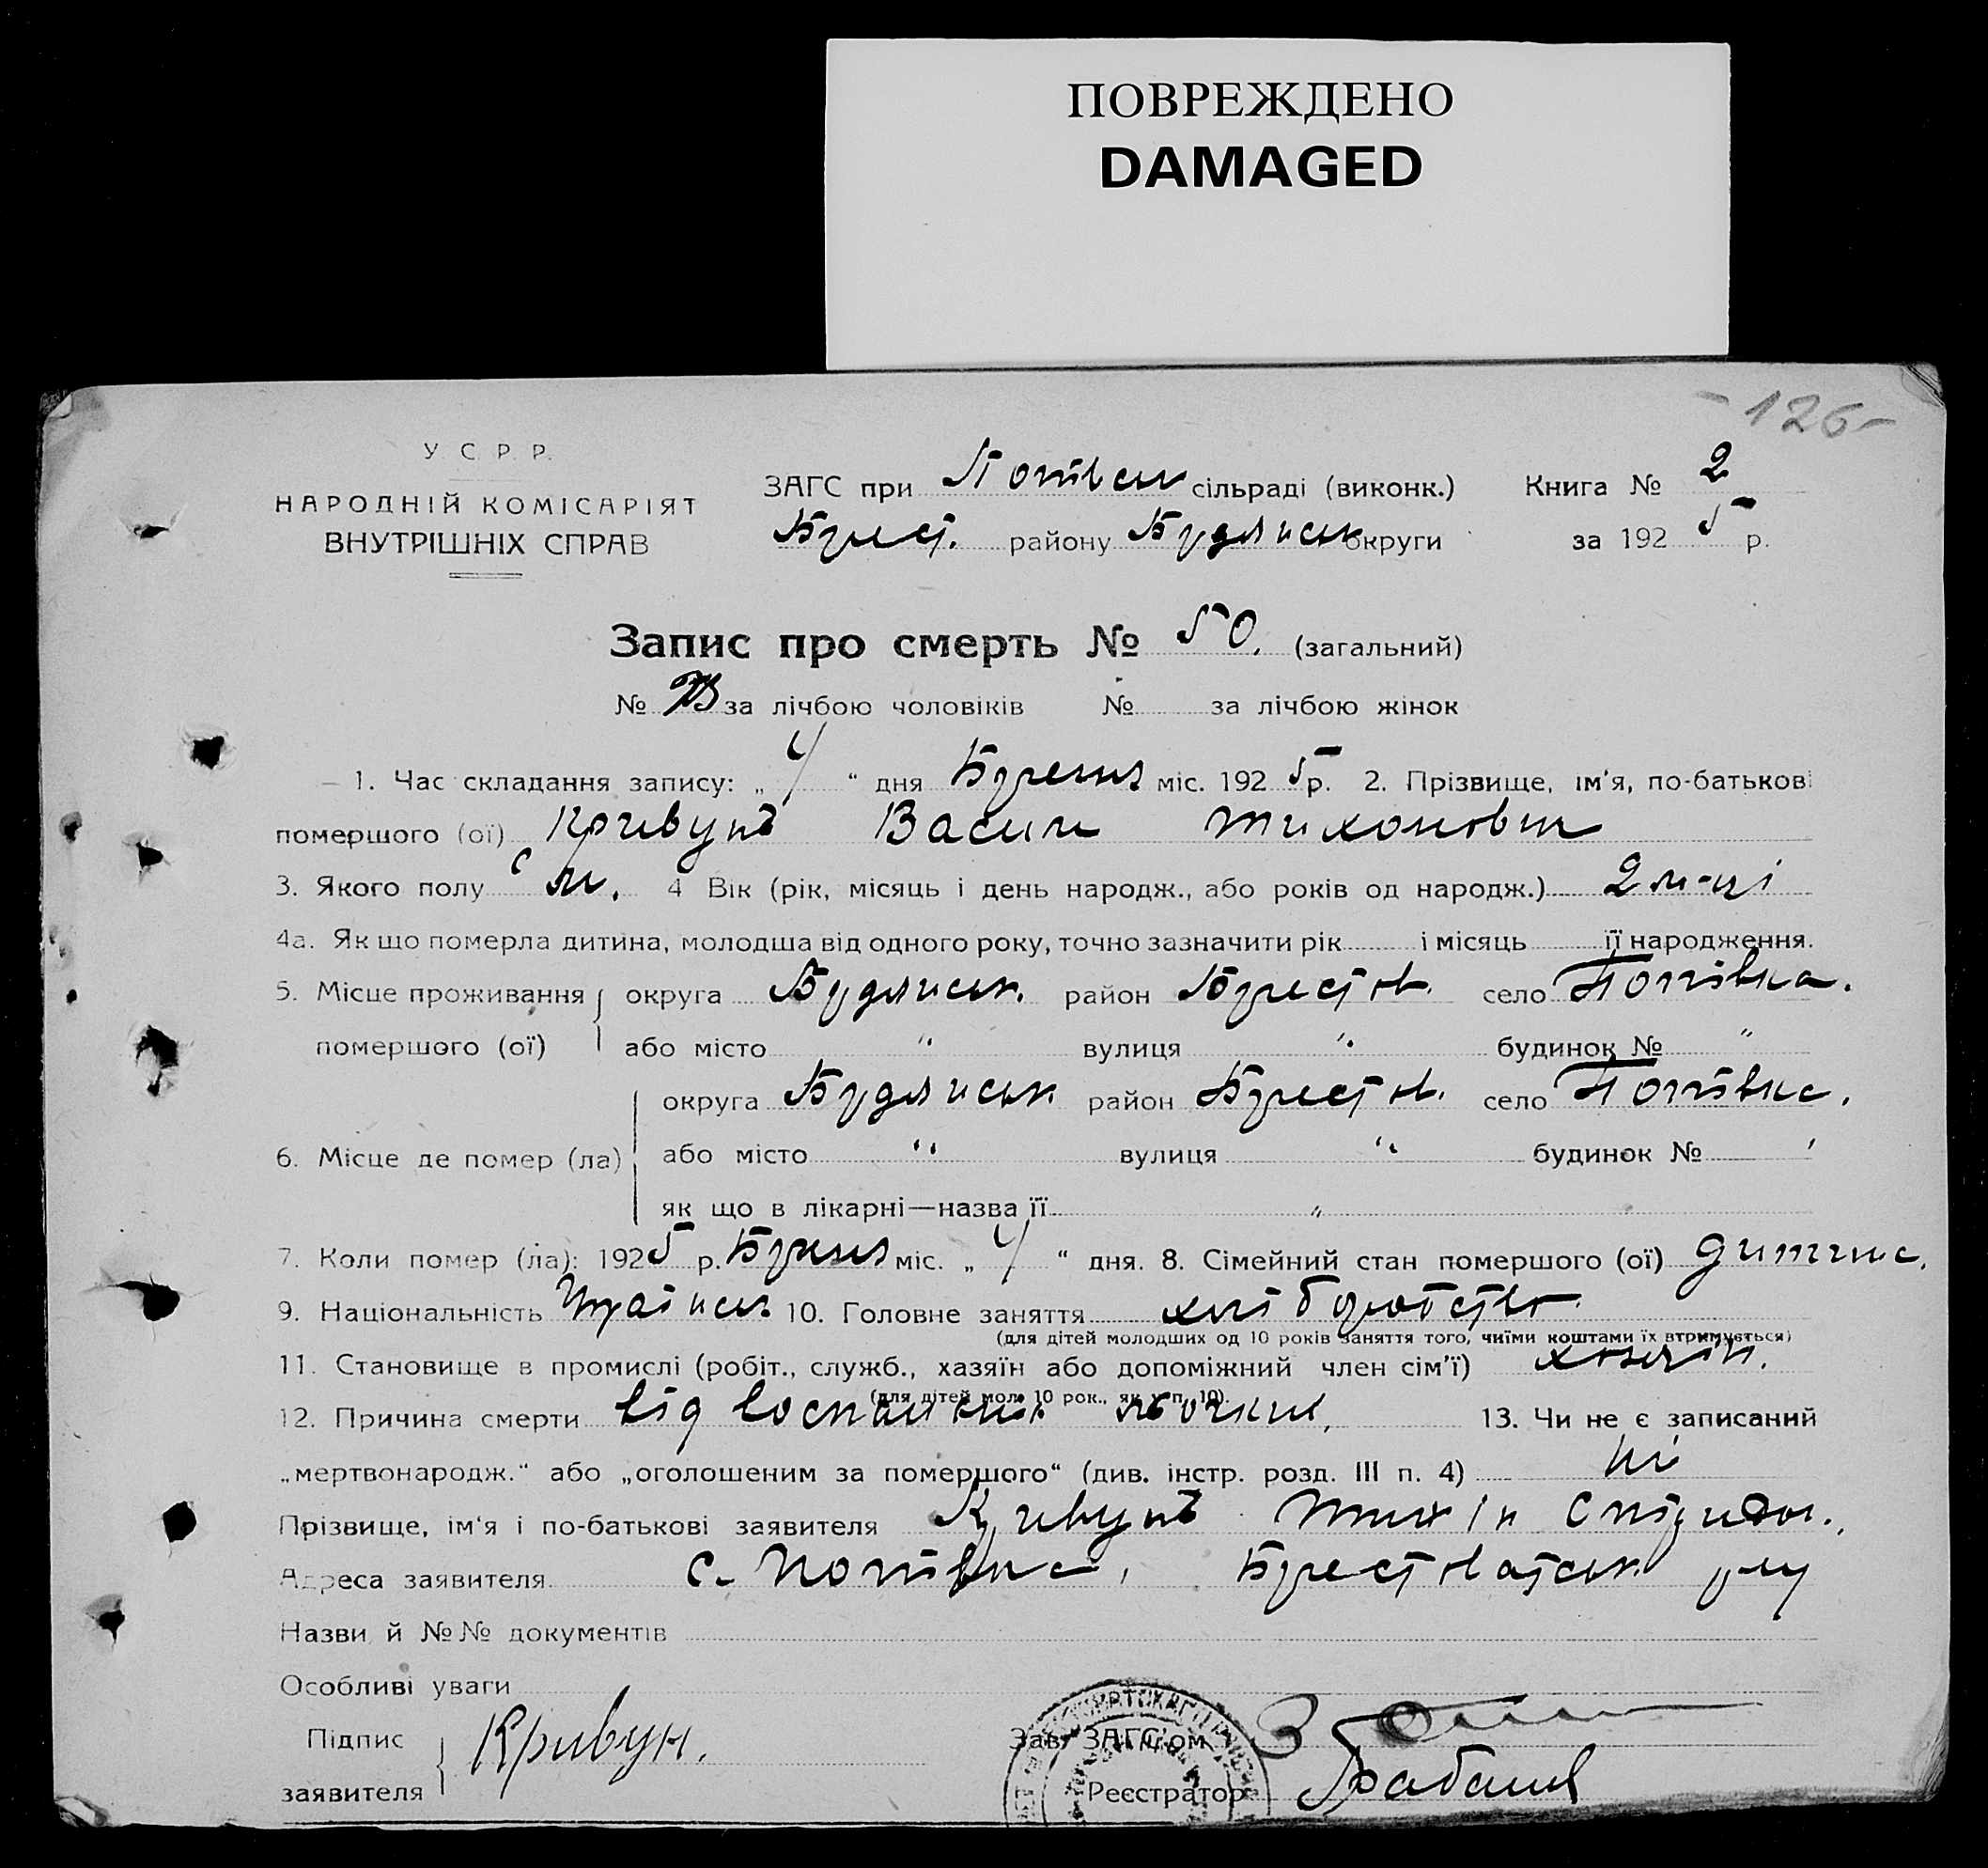 ПОВРЕЖДЕНО
DAMAGED
-126-
У. С. Р. Р.
НАРОДНІЙ КОМІСАРІЯТ
ВНУТРІШНІХ СПРАВ
ЗАГС при сільраді (виконк.) Книга № 2
району округи за 1925 р.
Запис про смерть № 50. (загальний)
№ за лічбою чоловіків № за лічбою жінок
1. Час складання запису: „ 4 “ дня міс. 1925 р. 2. Прізвище, ім'я, по-батькові
помершого (ої) Кривунъ Васили Тихонович
3. Якого полу м. 4 Вік (рік, місяць і день народж., або років од народж.) 2 м-ці
4а. Як що померла дитина, молодша від одного року, точно зазначити рік і місяць її народження.
5. Місце проживання округа район село Потівка.
помершого (ої) або місто " вулиця " будинок № "
округа район село Потівка.
6. Місце де помер (ла) або місто " вулиця " будинок №
як що в лікарні—назва її "
7. Коли помер (ла): 1925 р. міс. „ 4 “ дня. 8. Сімейний стан помершого (ої) дитина.
9. Національність 10. Головне заняття хліборобство.
(для дітей молодших од 10 років заняття того, чиїми коштами їх втримується)
11. Становище в промислі (робіт., служб., хазяїн або допоміжний член сім'ї) хозяїн.
(для дітей мол. 10 рок., як у п. 10).
12. Причина смерти від 13. Чи не є записаний
„мертвонародж.“ або „оголошеним за помершого“ (див. інстр. розд. III п. 4) ні
Прізвище, ім'я і по-батькові заявителя Кривунъ Тихін Спіридон.
Адреса заявителя с. Потівка,
Назви й №№ документів
Особливі уваги
Підпис заявителя Кривун.
Зав. ЗАГС'ом
Реєстратор